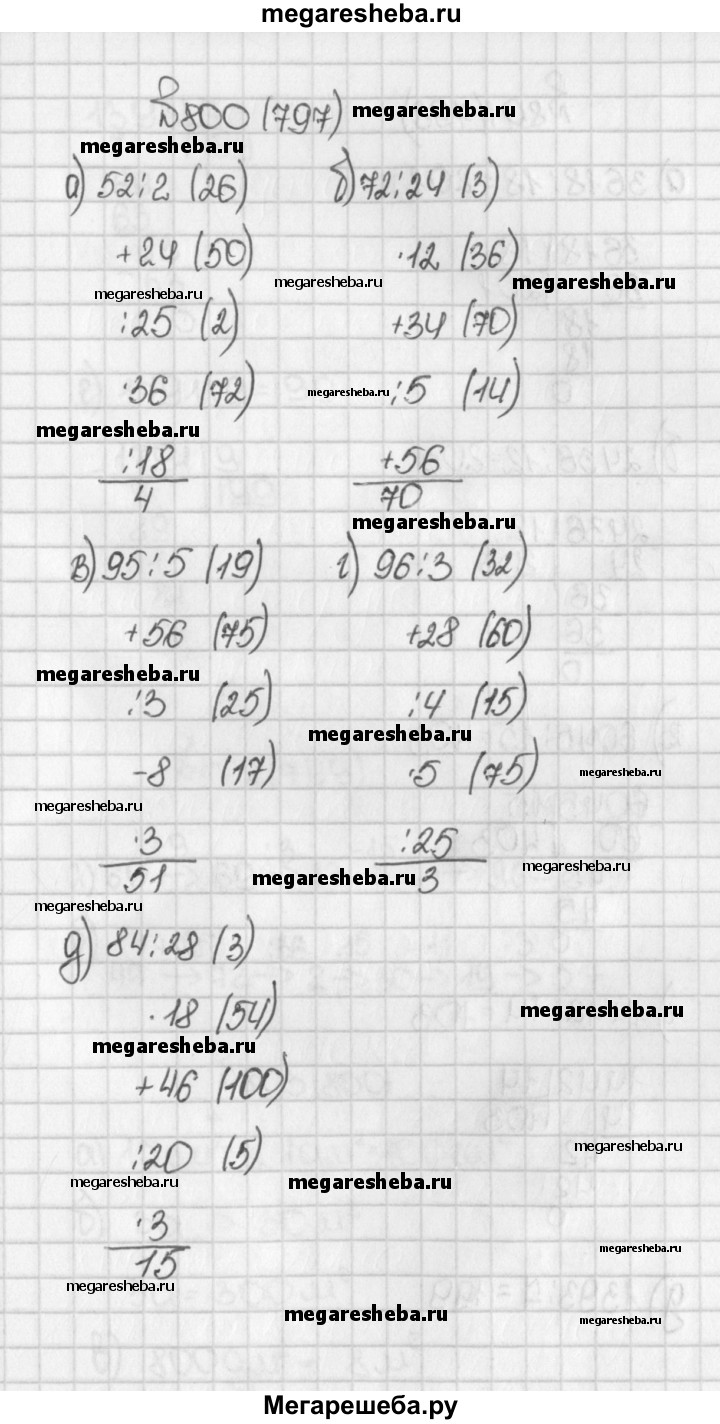 megaresheba.ru
№800 (797) megaresheba.ru
megaresheba.ru
а) 52:2 (26) б) 72:24 (3)
+24 (50) ·12 (36)
megaresheba.ru megaresheba.ru megaresheba.ru
:25 (2) +34 (70)
·36 (72) megaresheba.ru :5 (14)
megaresheba.ru
:18 +56
4 70
megaresheba.ru
в) 95:5 (19) г) 96:3 (32)
+56 (75) +28 (60)
megaresheba.ru
:3 (25) :4 (15)
megaresheba.ru
-8 (17) ·5 (75) megaresheba.ru
megaresheba.ru
·3 :25
51 megaresheba.ru 3 megaresheba.ru
megaresheba.ru
д) 84:28 (3)
·18 (54) megaresheba.ru
megaresheba.ru
+46 (100)
:20 (5) megaresheba.ru
megaresheba.ru megaresheba.ru
·3
15 megaresheba.ru
megaresheba.ru
megaresheba.ru
Мегарешеба.ру